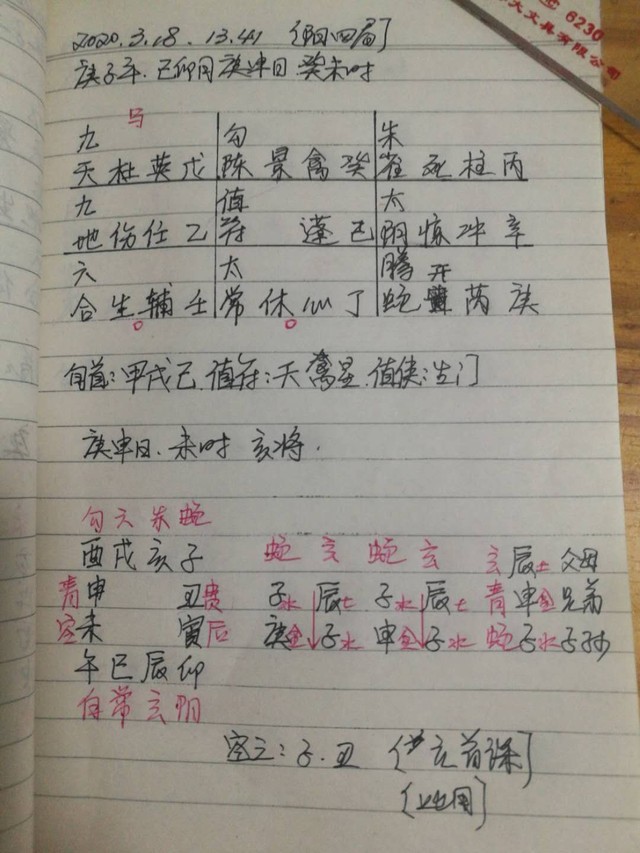 6230
大文具有限公司
2020.3.18.13.41 (阳四局]
庚子年.己卯月庚申日.癸未时
马
九 勾 朱
天杜英戊 陈景禽癸 雀死柱丙
九 值 太
地伤任乙 符 蓬己 阴惊冲辛
六 太 腾开
合生辅壬 常休心丁 蛇芮庚
旬首:甲戌己.值符:天禽星.值使:生门
庚申日.未时 亥将.
勾六朱蛇
酉戌亥子 蛇玄蛇玄 玄辰土父母
青申 丑贵 子水辰土子水辰土 青申金兄弟
空未 寅后 庚金子水申金子水 蛇子水子孙
午巳辰卯
白常玄阴
空亡:子.丑 (元首课]